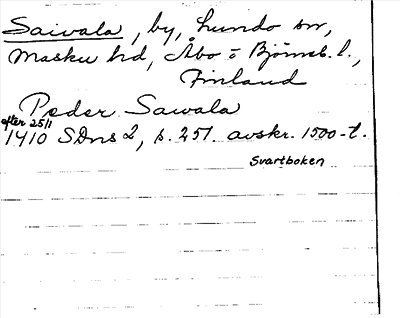 Saivala, by, Lundo sn,
Masku hd, Åbo o Björneb. l.,
Finland
Peder Sawala
efter 25/1
1410 SDns 2, s. 251. avskr. 1500-t.
Svartboken